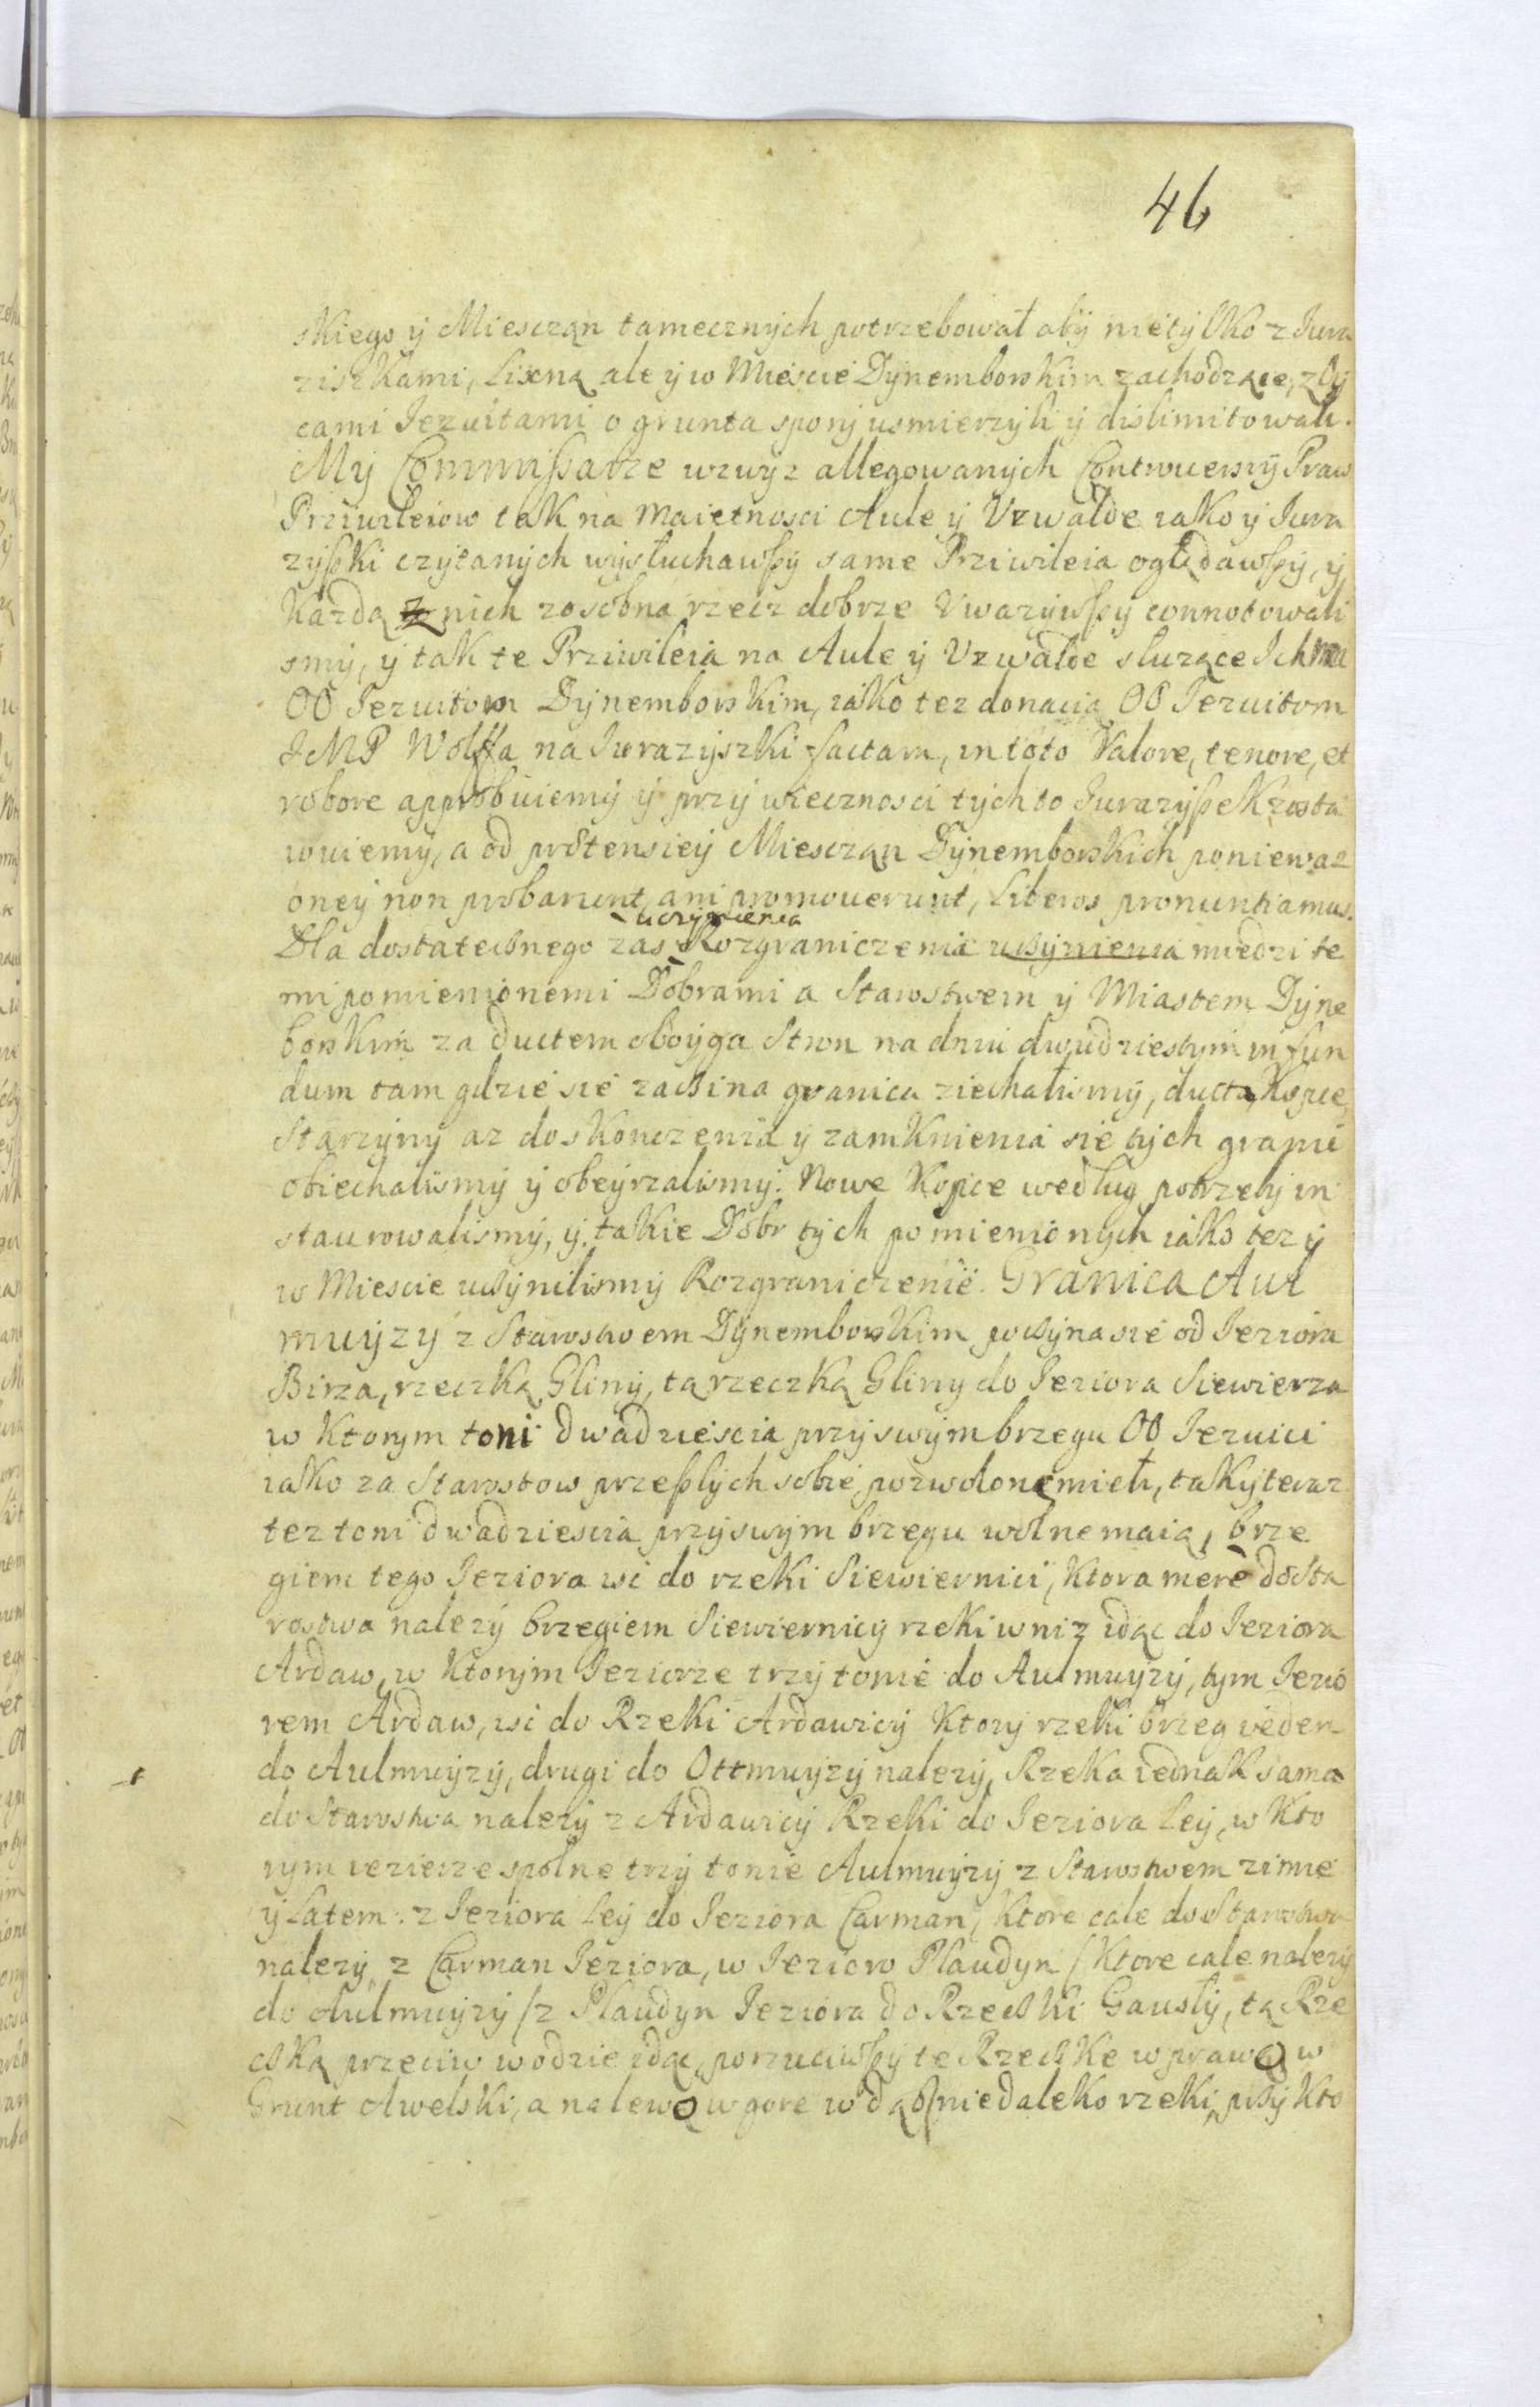 46
skiego ÿ Miesczan tamecznÿch potrzebował abÿ nietÿlko z Jura
ziszkami, Lixną ale ÿ w Miescie Dÿnemborskim zachodzące, z Oÿ
cami Jezuitami o grunta sporÿ usmierzÿli ÿ dislimitowali.
Mÿ Commißarze wzwÿz allegowanÿch Controuersiÿ Praw
Priwileiow tak na Maietnosci Aule ÿ Uzwalde iako ÿ Jura
zÿßki czÿtanÿch wÿsłuchawßÿ same Priwileia oglądawßÿ, ÿ
każdą z nich zosobna rzecz dobrze Uwazÿwßÿ connotowali
smÿ, ÿ tak te Priwileia na Aule ÿ Uzwalde sluzące Ichmc
OO Jezuitom Dÿnemborskim, iako tez donacią OO Jezuitom
JMP Wolffa na Jurazÿszki factam, in toto Valore, tenore, et
robore approbuiemÿ ÿ przÿ wiecznosci tÿchto Jurazÿßek zosta
wuiemÿ, a od prætensieÿ Miesczan Dÿnemborskich poniewaz
oneÿ non probarunt, ani promouerunt, liberos pronuntiamus.
uczÿnienia
Dla dostatecznego zas Rozgraniczenia uczÿnienia miedzi te
mi pomienionemi Dobrami a Starostwem ÿ Miastem Dÿne
borskim za ductem oboÿga Stron na dniu dwudziestÿm in fun
dum tam gdzie sie zaczina granica ziechalismÿ, ducta, Kopce
Starzÿnÿ az do skonczenia ÿ zamknienia sie tÿch granic
obiechalismÿ ÿ obeÿrzalismÿ. Nowe Kopce według potrzebÿ in
staurowalismÿ, ÿ takie Dobr tÿch pomienionÿch iako tez ÿ
w Miescie uczÿnilismÿ Rozgraniczenie. Granica Aul
muÿzÿ z Starostwem Dÿnemborskim poczÿna sie od Jeziora
Birza, rzeczką Glinÿ, tą rzeczką Glinÿ do Jeziora Siewierza
w ktorym toni dwadziescia przÿ swÿm brzegu OO Jezuici
iako za Starostow przeßlÿch sobie pozwolone mieli, tak ÿ teraz
tez toni dwadziescia przÿ swÿm brzegu wolne maią, brze
giem tego Jeziora isc do rzeki Siewiernici, ktora mere do Sta
rostwa nalezÿ brzegiem Siewiernicÿ rzeki wniz idąc do Jeziora
Ardaw, w ktorÿm Jeziorze trzÿ tonie do Aulmuÿzÿ, tym Jezio
rem Ardaw, isc do Rzeki Ardawicÿ ktorÿ rzeki brzeg ieden
do Aulmuÿzÿ, drugi do Ottmuÿzÿ nalezÿ, Rzeka iednak sama
do Starostwa nalezÿ z Ardawicÿ Rzeki do Jeziora Leÿ, w kto
rym iezierze spolne trzÿ tonie Aulmuÿzÿ z Starostwem zimie
ÿ Latem: z Jeziora Leÿ do Jeziora Carman, ktore cale do Starostwa
nalezÿ, z Carman Jeziora, w Jezioro Plaudyn /ktore cale nalezÿ
do Aulmuÿzÿ/ z Plaudyn Jeziora do Rzeczki Gaustÿ, tą Rze
czką przeciw wodzie idąc, porzuciwßÿ te Rzeczke wprawo w
Grunt Awelski, a nalewo w gore w dąb niedaleko rzeki, przÿ kto